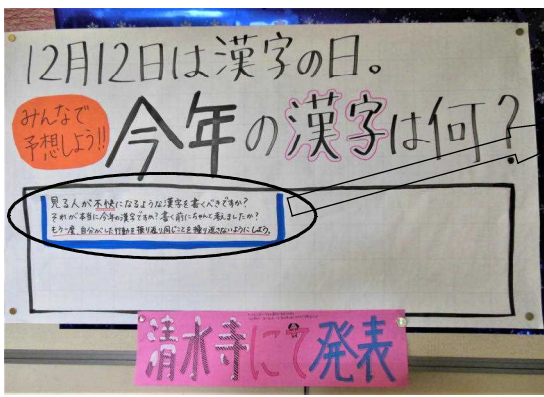 12月12日は漢字の日。
みんなで
予想しよう!!
今年の漢字は何?
見る人が不快になるような漢字を書くべきですか?
それが本当に今年の漢字ですか?書く前にちゃんと考えましたか?
もう一度、自分がした行動を振り返り同じことを繰り返さないようにしよう。
清水寺にて発表